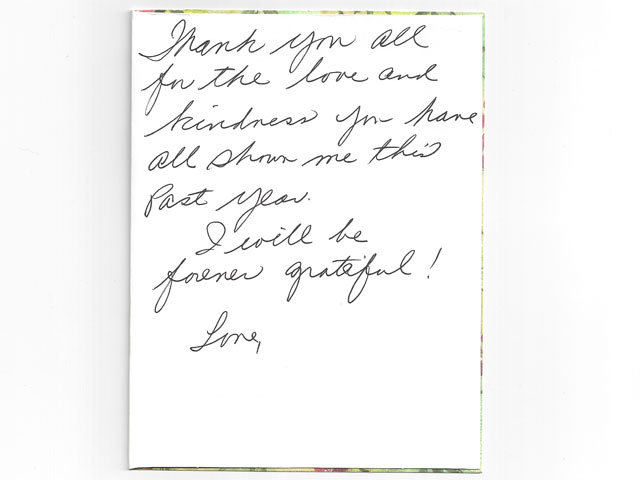 Thank you all
for the love and
kindness you have
all shown me this
Past year.
I will be
forever grateful!
Love,